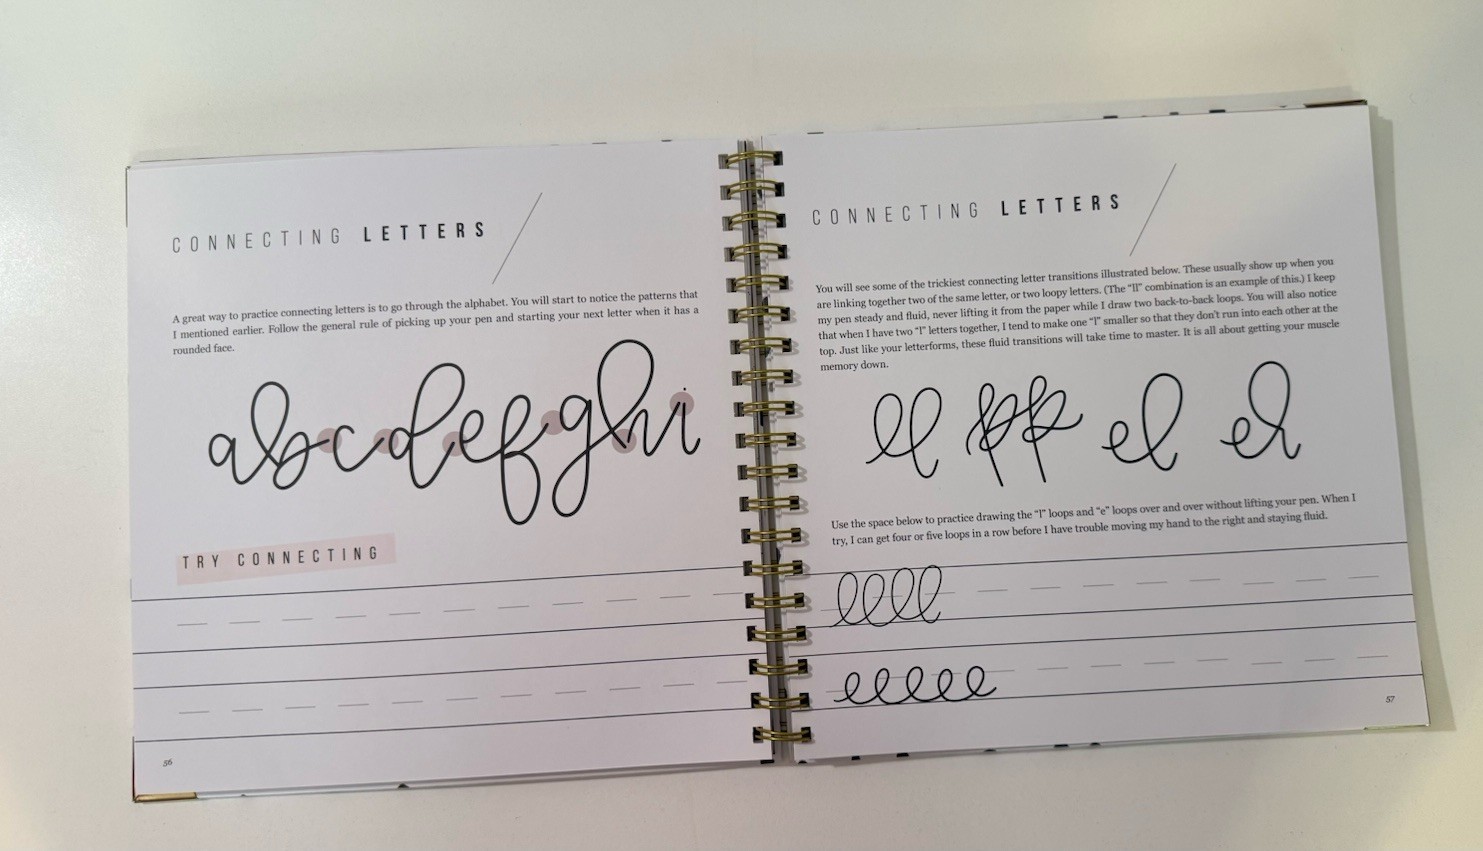 CONNECTING LETTERS
A great way to practice connecting letters is to go through the alphabet. You will start to notice the patterns that
I mentioned earlier. Follow the general rule of picking up your pen and starting your next letter when it has a
rounded face.
abcdefghi
TRY CONNECTING
56
CONNECTING LETTERS
You will see some of the trickiest connecting letter transitions illustrated below. These usually show up when you
are linking together two of the same letter, or two loopy letters. (The “ll” combination is an example of this.) I keep
my pen steady and fluid, never lifting it from the paper while I draw two back-to-back loops. You will also notice
that when I have two “l” letters together, I tend to make one “l” smaller so that they don’t run into each other at the
top. Just like your letterforms, these fluid transitions will take time to master. It is all about getting your muscle
memory down.
ll pp el eh
Use the space below to practice drawing the “l” loops and “e” loops over and over without lifting your pen. When I
try, I can get four or five loops in a row before I have trouble moving my hand to the right and staying fluid.
llll
eeeee
57